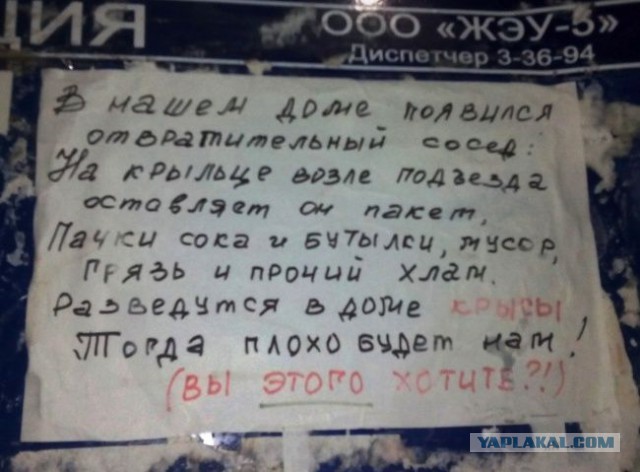 ЦИЯ
ООО «ЖЭУ-5»
Диспетчер 3-36-94
В нашем доме появился
отвратительный сосед:
На крыльце возле подъезда
оставляет он пакет,
Пачки сока и бутылки, мусор,
грязь и прочий хлам.
Разведутся в доме крысы
Тогда плохо будет нам!
(ВЫ ЭТОГО ХОТИТЕ?!)
YAPLAKAL.COM